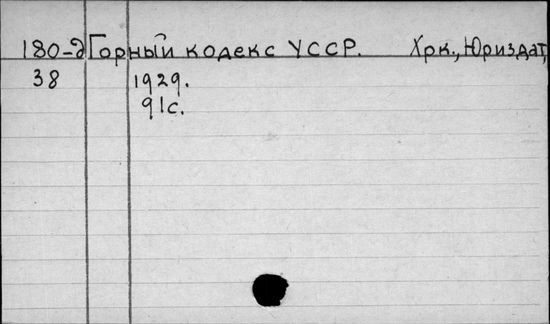 180-д Горный кодекс УССР. Хрк., Юриздат,
38 1929.
91с.